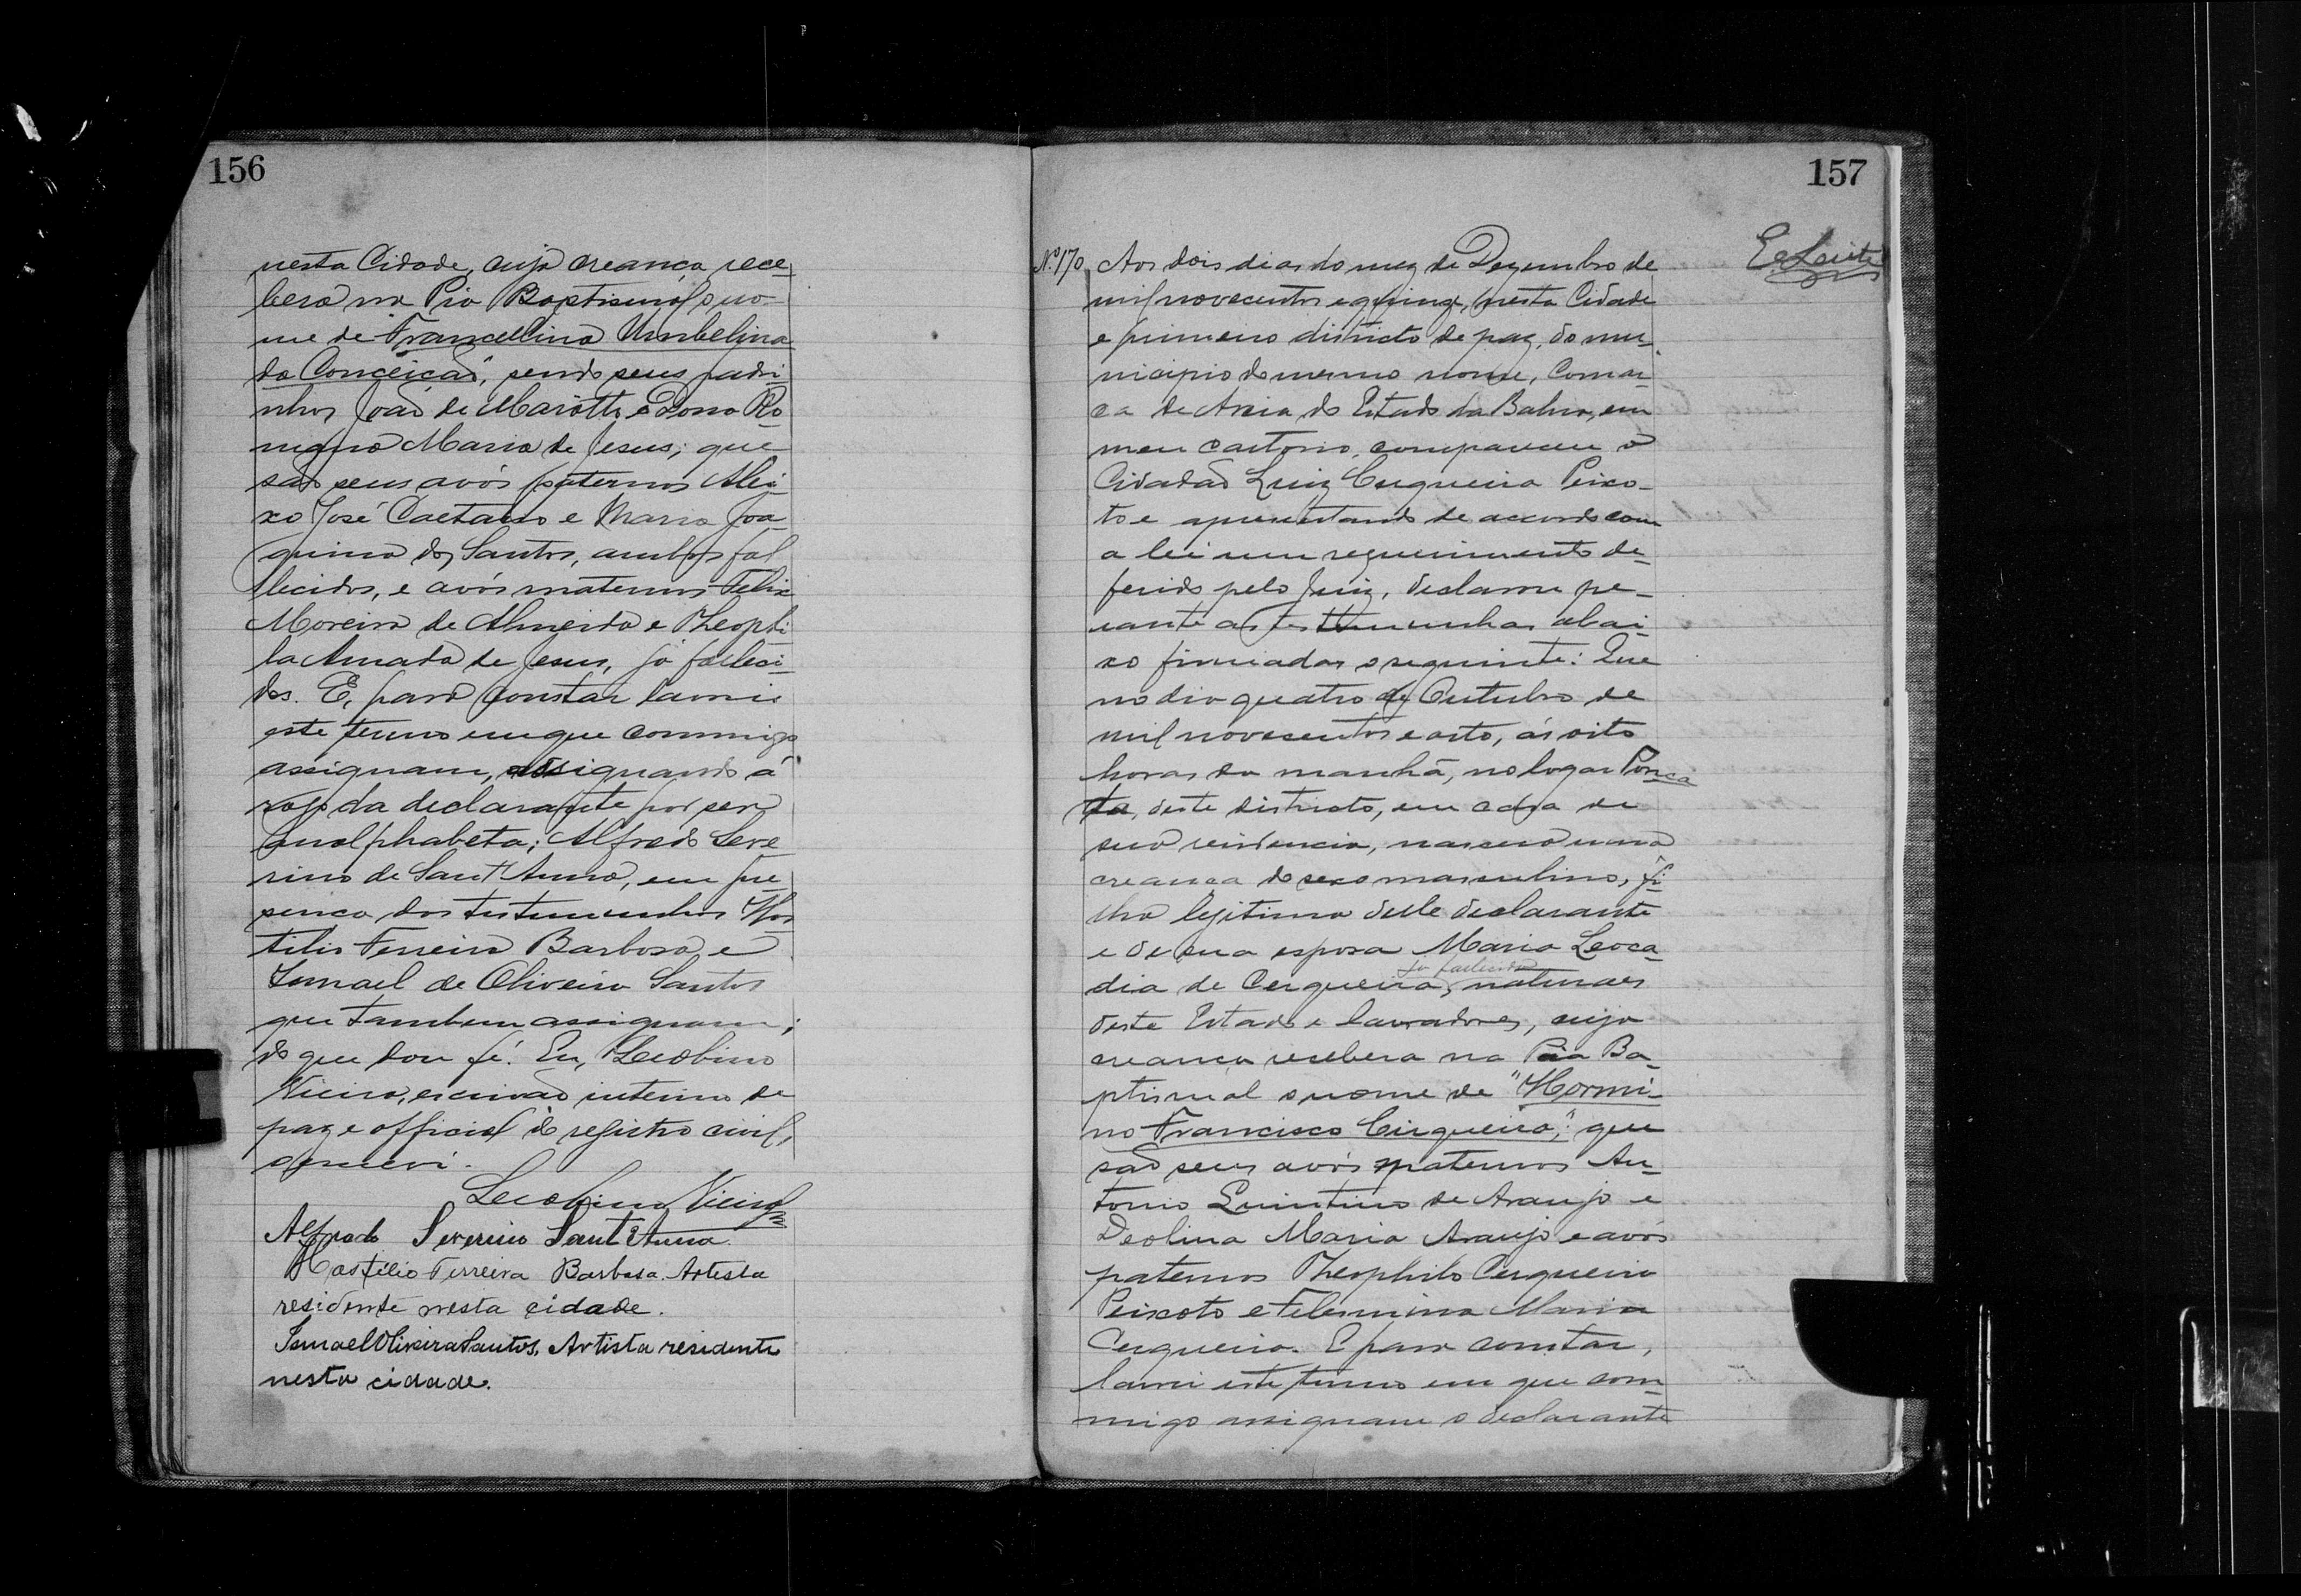 156
nesta Cidade, cuja creança rece-
berá na Pia Baptismal o no-
me de Francellina Umbelina
da Conceição, sendo seus padri-
nhos João de Mariotte e Dona Ro-
mana Maria de Jesus; que
são seus avós paternos Alei-
xo José Caetano e Maria Joa-
quina dos Santos, ambos fal-
lecidos, e avós maternos Felix
Moreira de Almeida e Theophi-
la Amada de Jesus, já falleci-
dos. E, para constar lavrei
este termo em que commigo
assignam, assignando á
rogo da declarante por ser
analphabeta; Alfredo Seve-
rino de Sant'Anna, em pre-
sença das testemunhas Hos-
tilio Ferreira Barbosa e
Ismael de Oliveira Santos
que tambem assignam;
do que dou fé. Eu, Lecobino
Vieira, escrivão interino de
paz e official do registro civil,
o escrevi.
Lecobino Vieira
Alfredo Severino Sant'Anna
Hostilio Ferreira Barbosa. Artista
residente nesta cidade.
Ismael Oliveira Santos, Artista residente
nesta cidade.
157
E. Leite
Nº 170 Aos dois dias do mez de Dezembro de
mil novecentos e quinze, nesta Cidade
e primeiro districto de paz, do mu-
nicipio do mesmo nome, Comar-
ca de Areia do Estado da Bahia, em
meu cartorio, compareceu o
Cidadão Luiz Cerqueira Peixo-
to e apresentando de accordo com
a lei um requerimento de-
ferido pelo Juiz, declarou pe-
rante as testemunhas abai-
xo firmadas o seguinte: Que
no dia quatro de Outubro de
mil novecentos e oito, ás oito
horas da manhã, no logar Ponca
ta, deste districto, em casa de
sua residencia, nasceu uma
creança do sexo masculino, fi-
lha legitima delle declarante
e de sua esposa Maria Leoca-
já fallecida
dia de Cerqueira, naturaes
deste Estado e lavradores, cuja
creança recebera na Pia Ba-
ptismal o nome de "Hormi-
no Francisco Cirqueira," que
são seus avós maternos An-
tonio Quintino de Araujo e
Deolina Maria Araujo e avós
paternos Theophilo Cerqueira
Peixoto e Felismina Maria
Cerqueira. E para constar,
lavrei este termo em que com-
migo assignam o declarante